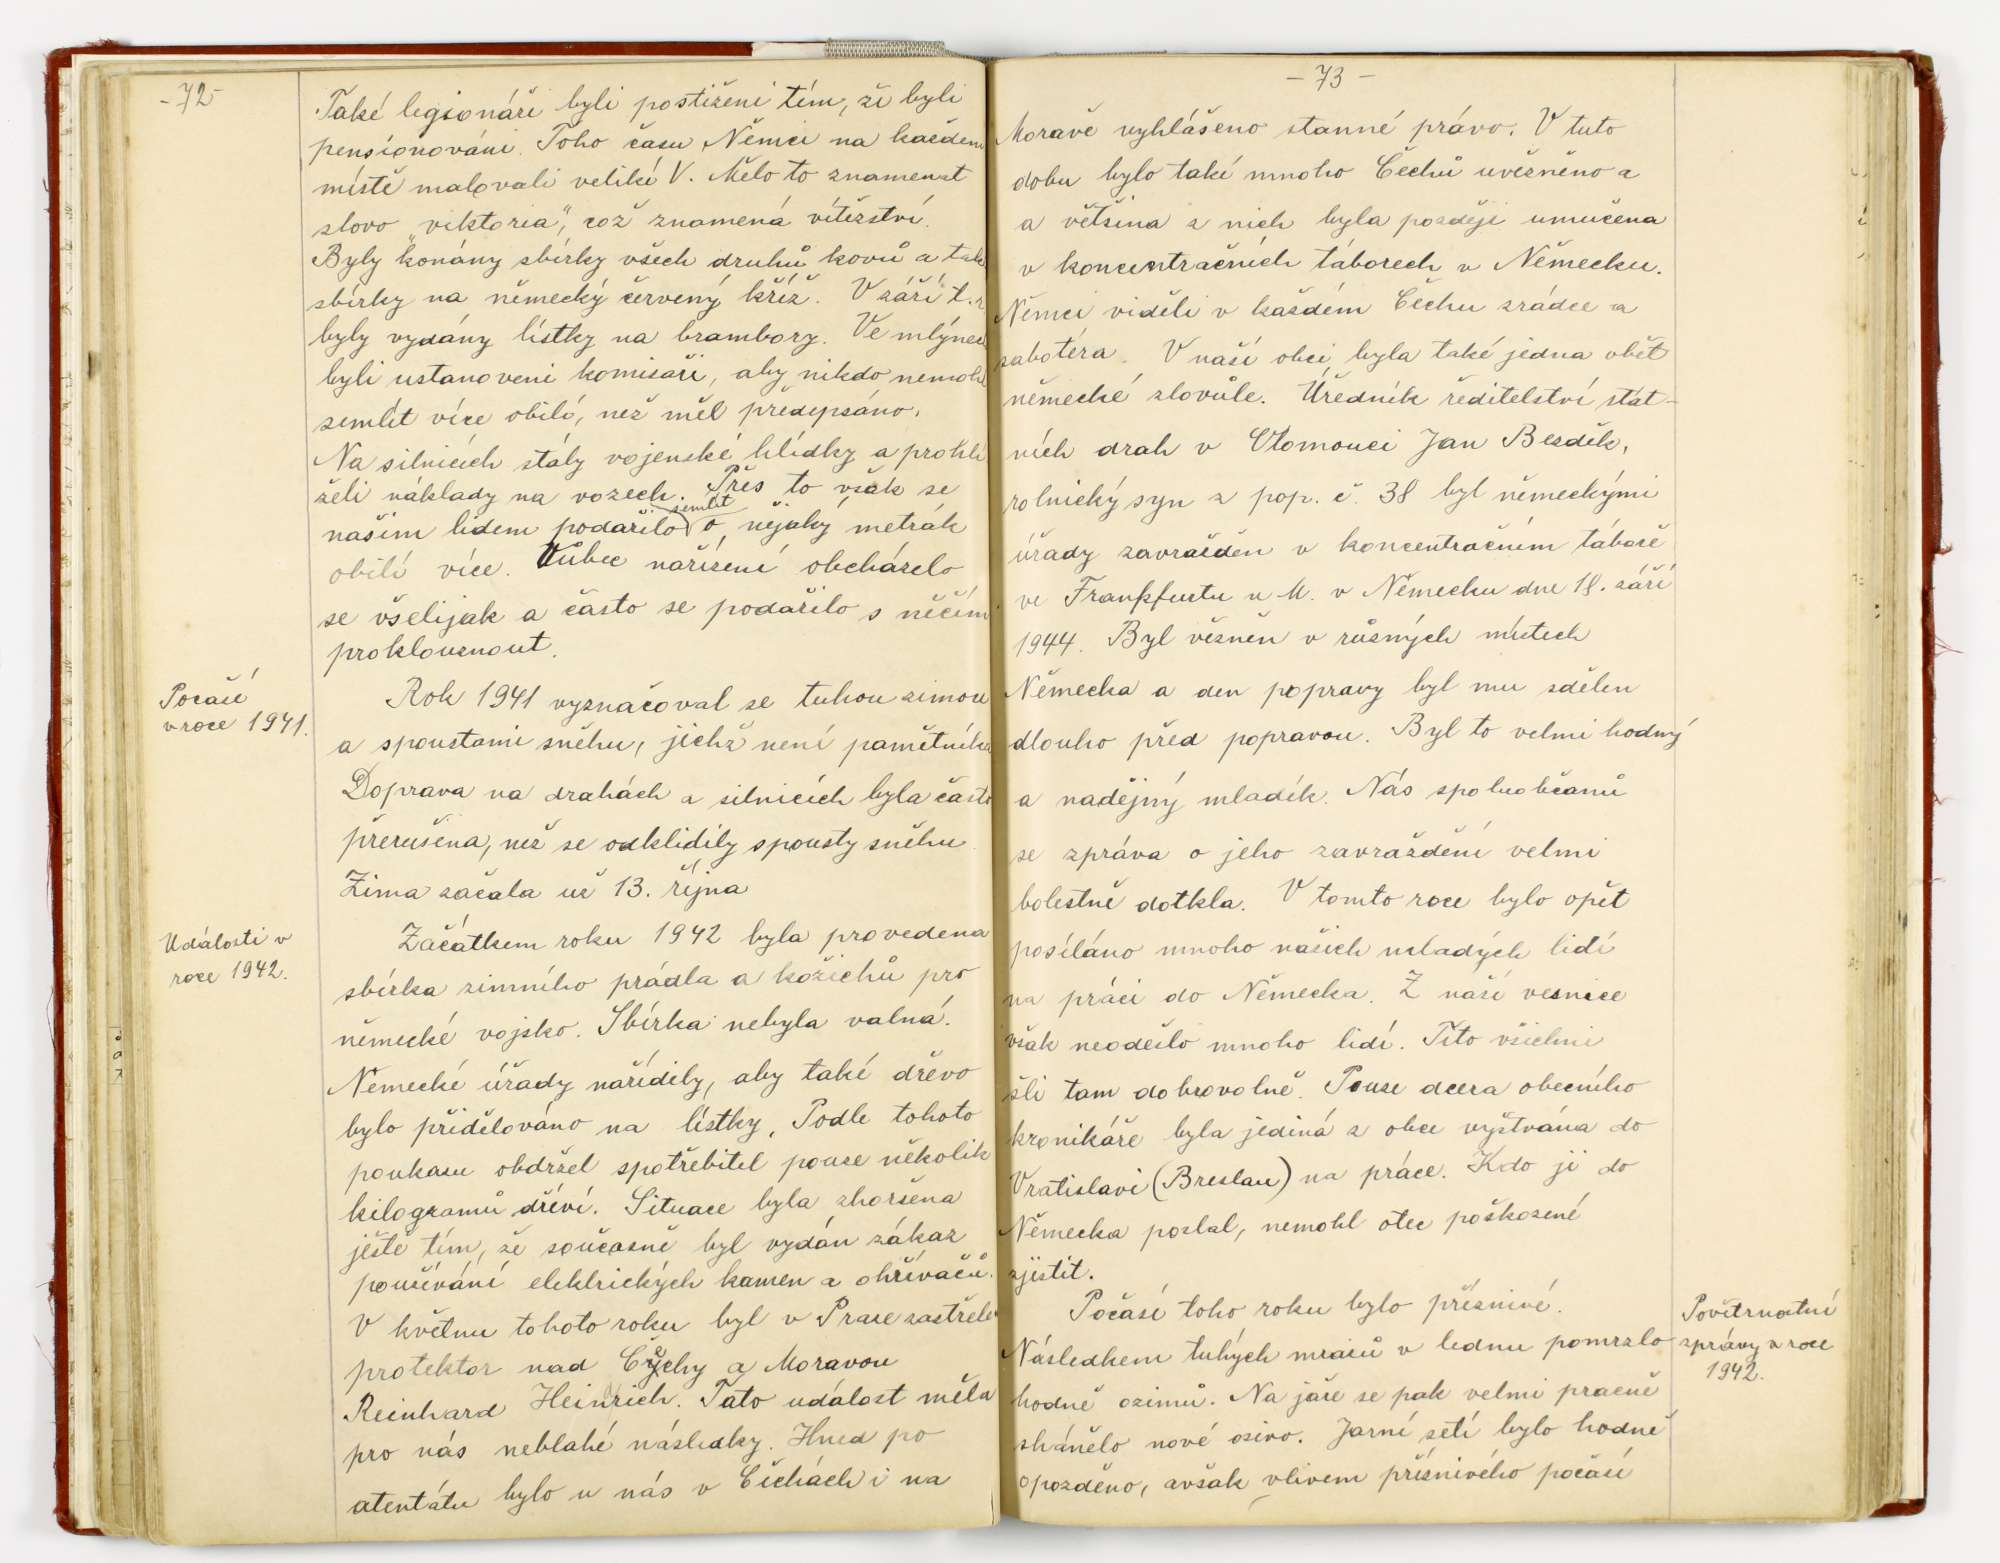 -72-
Také legionáři byli postiženi tím, že byli
pensionováni. Toho času Němci na každém
místě malovali veliké V. Mělo to znamenat
slovo „viktoria“, což znamená vítězství.
Byly konány sbírky všech druhů kovů a tak
sbírky na německý červený kříž. V září t. r
byly vydány lístky na brambory. Ve mlýnech
byli ustanoveni komisaři, aby nikdo nemohl
semlít více obilí, než měl předepsáno.
Na silnicích stály vojenské hlídky a prohlí
želi náklady na vozech. Přes to však se
semlít
našim lidem podařilo o nějaký metrák
obilí více. Vůbec nařízení obcházelo
se všelijak a často se podařilo s něčím
proklouznout.
Počasí
v roce 1941.
Rok 1941 vyznačoval se tuhou zimou
a spoustami sněhu, jichž není pamětníka
Doprava na drahách a silnicích byla často
přerušena, než se odklidily spousty sněhu.
Zima začala už 13. října
Události v
roce 1942.
Začátkem roku 1942 byla provedena
sbírka zimního prádla a kožichů pro
německé vojsko. Sbírka nebyla valná.
Německé úřady nařídily, aby také dřevo
bylo přidělováno na lístky. Podle tohoto
poukasu obdržel spotřebitel pouze několik
kilogramů dříví. Situace byla zhoršena
ještě tím, že současně byl vydán zákaz
používání elektrických kamen a ohřívačů.
V květnu tohoto roku byl v Praze zastřelen
protektor nad Čechy a Moravou
Reinhard Heinrich. Tato událost měla
pro nás neblahé následky. Hned po
atentátu bylo u nás v Čechách i na
- 73 -
Moravě vyhlášeno stanné právo. V tuto
dobu bylo také mnoho Čechů uvězněno a
a většina z nich byla později umučena
v koncentračních táborech v Německu.
Němci viděli v každém Čechu zrádce a
sabotéra. V naší obci byla také jedna oběť
německé zlovůle. Úředník ředitelství stát-
ních drah v Olomouci Jan Bezděk,
rolnický syn z pop. č. 38 byl německými
úřady zavražděn v koncentračním táboře
ve Frankfurtu n M. v Německu dne 18. září
1944. Byl vězněn v různých místech
Německa a den popravy byl mu sdělen
dlouho před popravou. Byl to velmi hodný
a nadějný mladík. Nás spoluobčanů
se zpráva o jeho zavraždění velmi
bolestně dotkla. V tomto roce bylo opět
posíláno mnoho našich mladých lidí
na práci do Německa. Z naší vesnice
však neodešlo mnoho lidí. Tito všichni
šli tam dobrovolně. Pouze dcera obecního
kronikáře byla jediná z obce vyštvána do
Vratislavi (Breslau) na práce. Kdo ji do
Německa poslal, nemohl otec poškozené
zjistit.
Počasí toho roku bylo příznivé.
Povětrnostní
zprávy z roce
1942.
Následkem tuhých mrazů v lednu pomrzlo
hodně ozimů. Na jaře se pak velmi pracně
shánělo nové osivo. Jarní setí bylo hodně
opožděno, avšak vlivem příznivého počasí